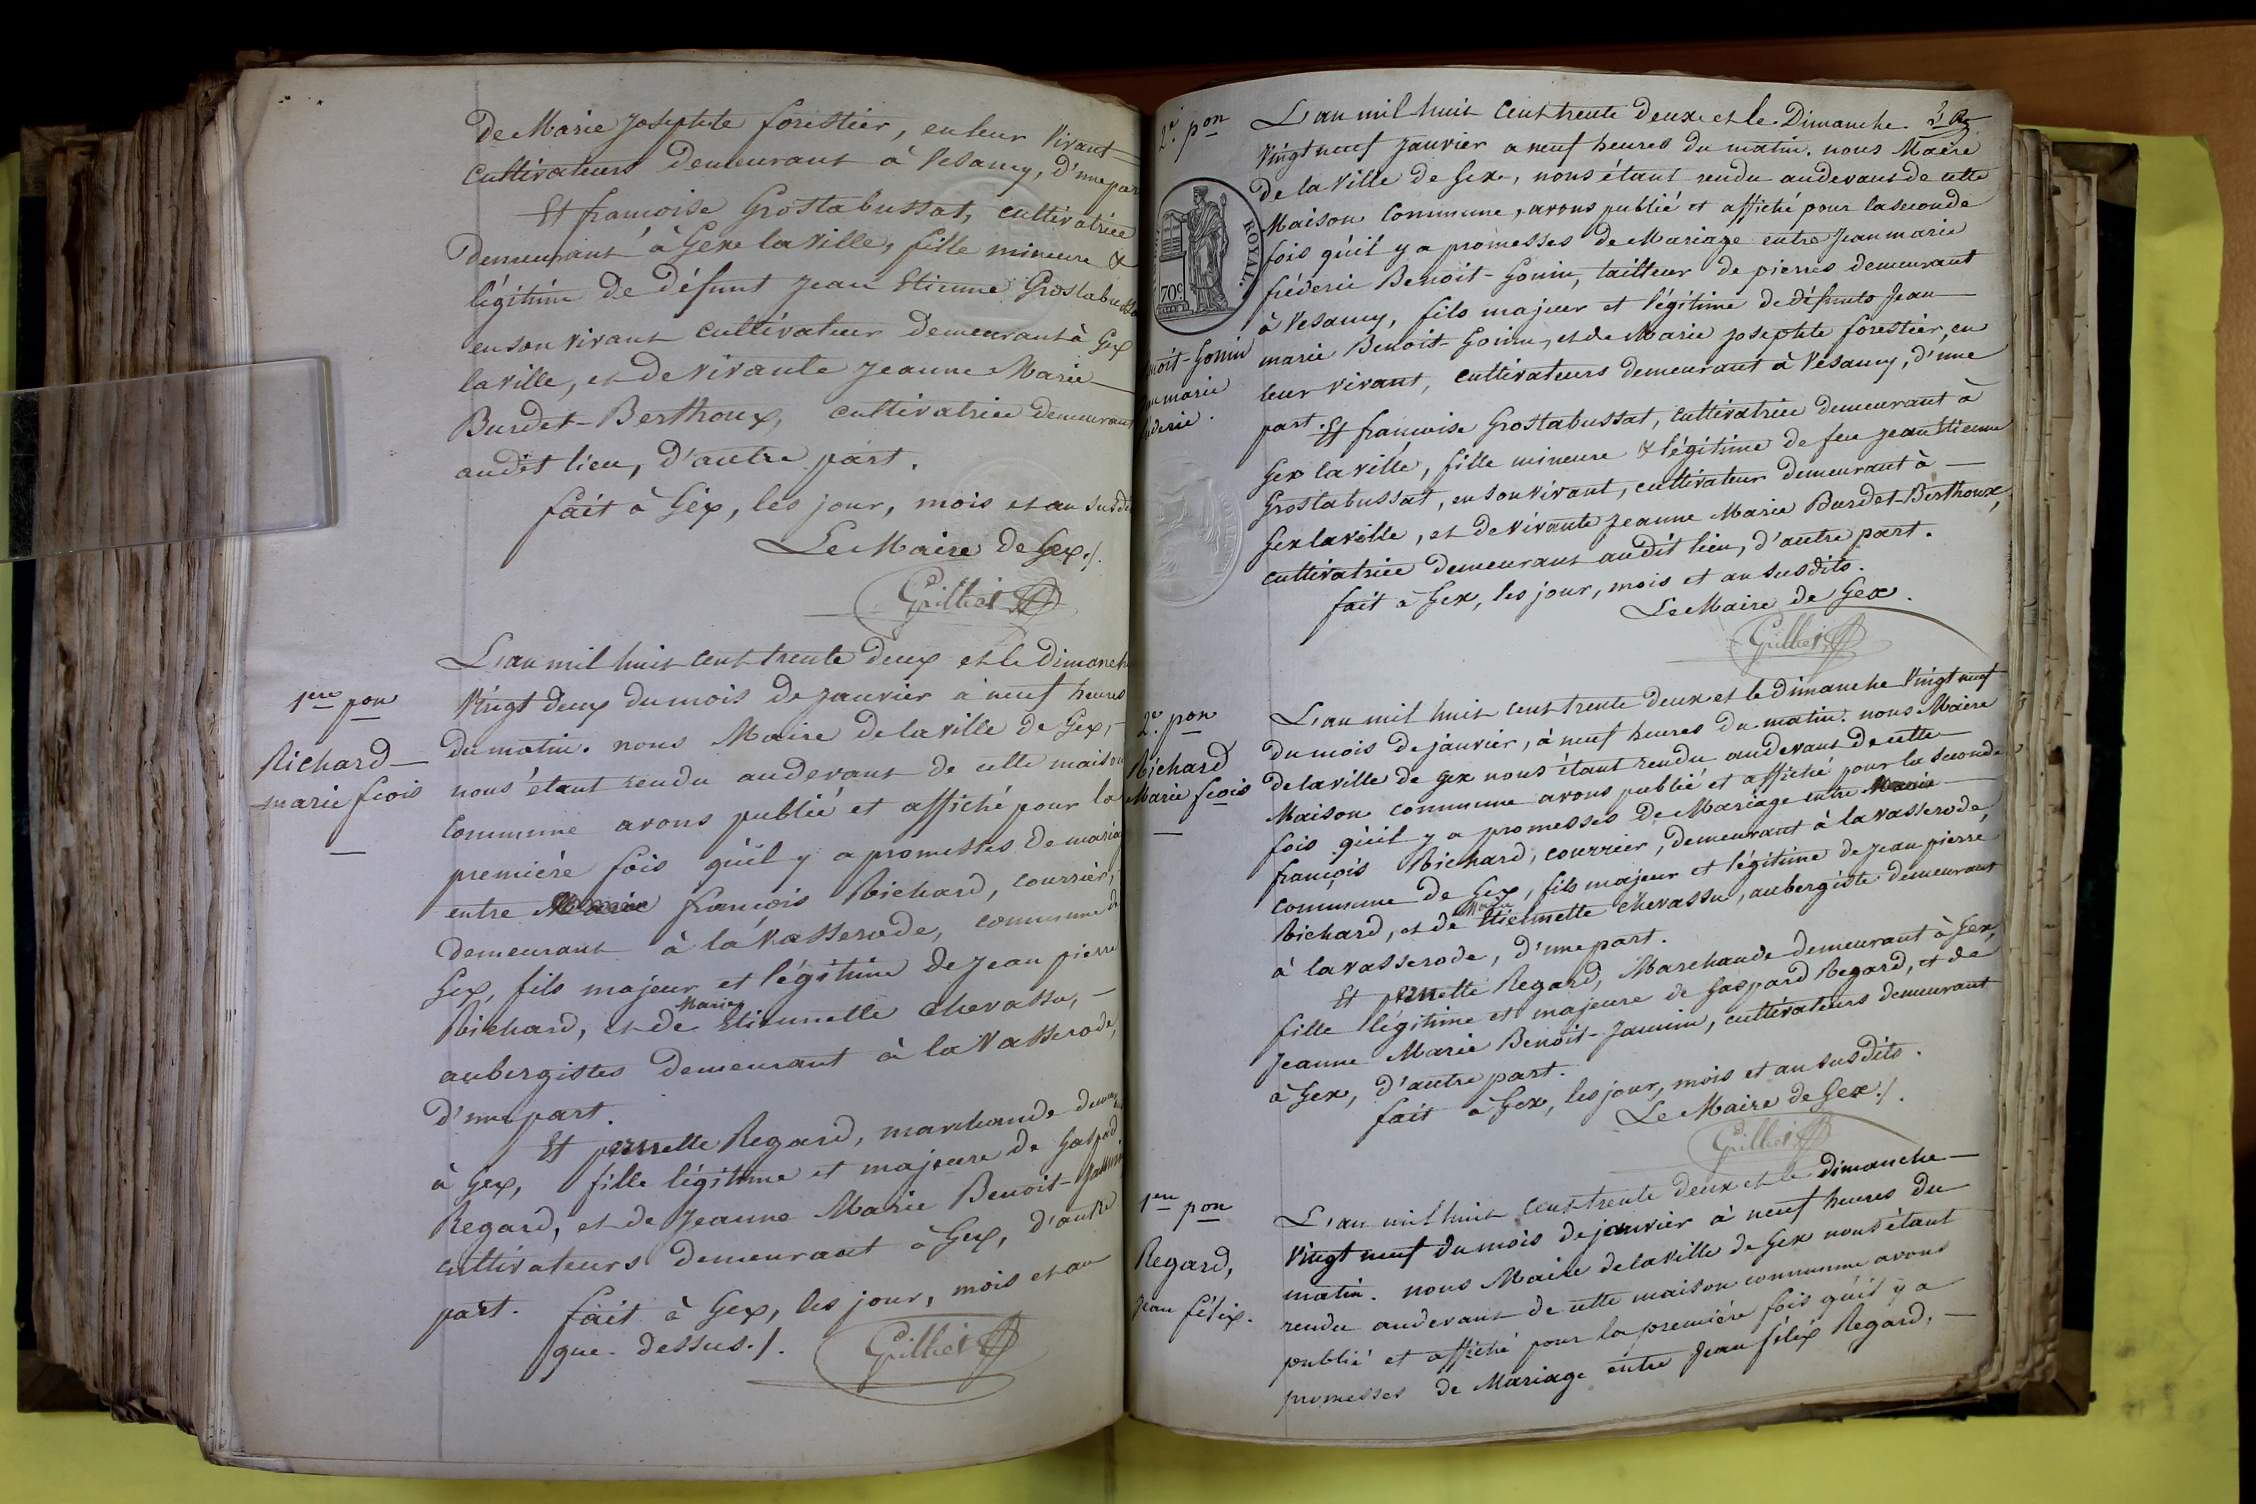 De Marie Josephte forestier, en leur vivant
cultivateurs demeurant à Vesancy, d'une par
Et francoise Grostabussat, cultivatrice
demeurant à Gex la ville, fille mineure &
légitime de défunt Jean Etienne Grostabussa
en son vivant cultivateur demeurant à Gex
la ville, et de vivante Jeanne Marie
Burdet-Berthoux, cultivatrice demeurant
audit lieu, d'autre part.
fait à Gex, les jour, mois et an susdi
Le Maire de Gex./.
Grilliet
1ere pon
Richard
marie fcois
L'an mil huit cent trente deux et le Dimanch
Vingt deux du mois de janvier à neuf heures
du matin. nous Maire de la ville de Gex,
nous étant rendu audevant de cette maison
commune avons publié et affiché pour la
première fois qu'il y a promesses de maria
entre Marie françois Richard, courrier,
demeurant à la Vasserode, commune de
Gex, fils majeur et légitime de jean pierre
Marie
Richard, et de Etiennette Chevassu,
aubergistes demeurant à la Vasserode,
d'une part.
Et pernette Regard, marchande demeu
à Gex, fille légitime et majeure de Gaspard
Regard, et de Jeanne Marie Benoit-Jannin
cultivateurs demeurant à Gex, d'autre
part. fait à Gex, les jour, mois et an
que dessus./.
Grilliet
2e. pon
ROYAL
70c
noit-Gonin
an marie
éderic.
L'an mil huit cent trente deux et le Dimanche
Vingt neuf janvier a neuf heures du matin. nous Maire
de la Ville de Gex, nous étant rendu audevant de cette
Maison Commune, avons publié et affiché pour la seconde
fois qu'il y a promesses de Mariage entre Jean marie
fréderic Benoit-Gonin, tailleur de pierres demeurant
à Vesancy, fils majeur et légitime de défunts Jean
marie Benoit-Gonin, et de Marie Josephte forestier, en
leur vivant, cultivateurs demeurant à Vesancy, d'une
part. Et françoise Grostabussat, cultivatrice demeurant à
Gex la ville, fille mineure & légitime de feu jean Etienne
Grostabussat, en son vivant, cultivateur demeurant à
Gex la ville, et de vivante Jeanne Marie Burdet-Berthoux,
cultivatrice demeurant audit lieu, d'autre part.
fait à Gex, les jour, mois et an susdits.
Le Maire de Gex.
Grilliet
2e. pon
Richard
Marie fcois
L'an mil huit cent trente deux et le dimanche Vingt neuf
du mois de janvier, à neuf heures du matin. nous Maire
de la ville de Gex nous étant rendu audevant de cette
Maison commune avons publié et affiché pour la seconde
fois qu'il y a promesses de Mariage entre Marie
françois Richard, courrier, demeurant à la vasserode,
commune de Gex, fils majeur et légitime de jean pierre
Marie
Richard, et de Etiennette Chevassu, aubergiste demeurant
à la vasserode, d'une part.
Et pernette Regard, Marchande demeurant à Gex,
fille légitime et majeure de Gaspard Regard, et de
Jeanne Marie Benoit-Jannin, cultivateurs demeurant
à Gex, d'autre part.
fait à Gex, les jour, mois et an susdits.
Le Maire de Gex./.
Grilliet
1ere pon
Regard,
Jean félix.
L'an mil huit cent trente deux et le dimanche
Vingt neuf du mois de janvier à neuf heures du
matin. nous Maire de la ville de Gex nous étant
rendu audevant de cette maison commune avons
publié et affiché pour la première fois qu'il y a
promesses de Mariage entre Jean félix Regard,